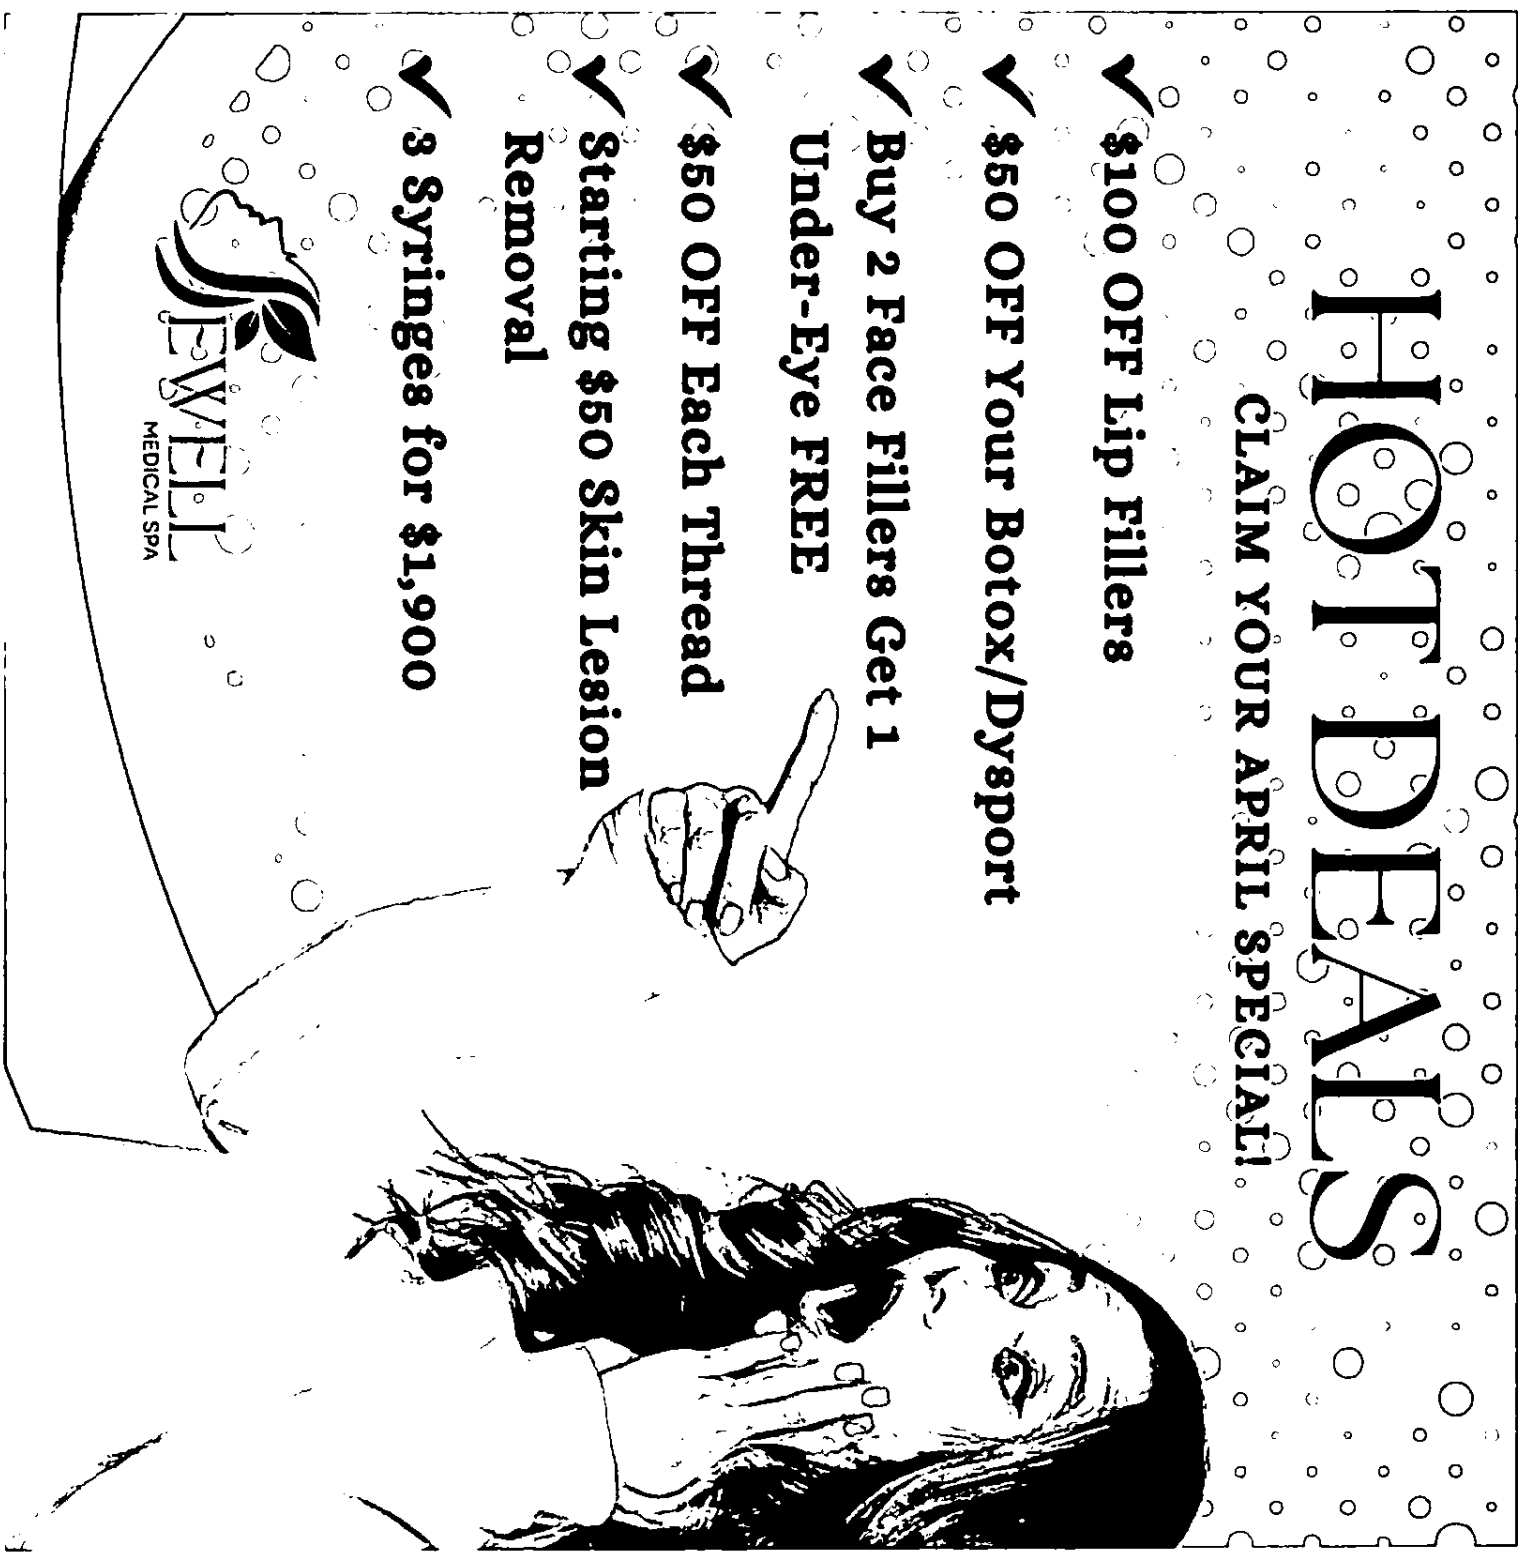 HOT DEALS
CLAIM YOUR APRIL SPECIAL!
$100 OFF Lip Fillers
$50 OFF Your Botox/Dysport
Buy 2 Face Fillers Get 1
Under-Eye FREE
$50 OFF Each Thread
Starting $50 Skin Lesion
Removal
3 Syringes for $1,900
EWELL
MEDICAL SPA